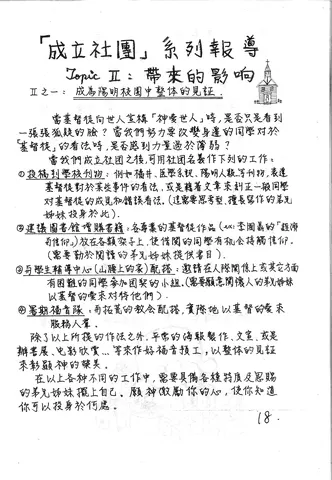 「成立社團」系列報導
Topic II：帶來的影响
II之一：成為陽明校園中整体的見証．
當基督徒向世人宣稱「神愛世人」時，是否只看到
一張張狐疑的臉？當我們努力要改變身邊的同學對於
「基督徒」的看法時，是否感到力量過於薄弱？
當我們成立社團之後，可用社團名義作下列的工作：
①投稿到學校刊物：例如福井、医學系統、陽明人報等刊物，表達
基督徒對於某些事件的看法，或是藉着文章來糾正一般同學
對基督徒的成見和錯誤看法。（這需要思考型、擅長寫作的弟兄
姊妹投身於此）．
②建議圖書館增購書籍：各專業的基督徒作品（ex：李國鼎的「經濟
與信仰」）放在各類架子上，使借閱的同學有机会接觸信仰．
（需要勤於閱讀的弟兄姊妹提供書目）．
③与學生輔導中心（山腰上的家）配搭：邀請在人際関係上或其它方面
有困難的同學參加团契的小組．（需要願意関懷人的弟兄姊妹
以基督的愛來对待他們）．
④暑期福音隊：与拓荒的教会配搭，實際地以基督的愛來
服務人羣．
除了以上所提的作法之外，平常的海報製作、文宣、或是
辦書展、电影欣賞…等來作好福音預工，以整体的見証
來彰顯神的榮美．
在以上各种不同的工作中，需要具備各種特质及恩賜
的弟兄姊妹擺上自己．願神激勵你的心，使你知道
你可以投身於何處．
18.